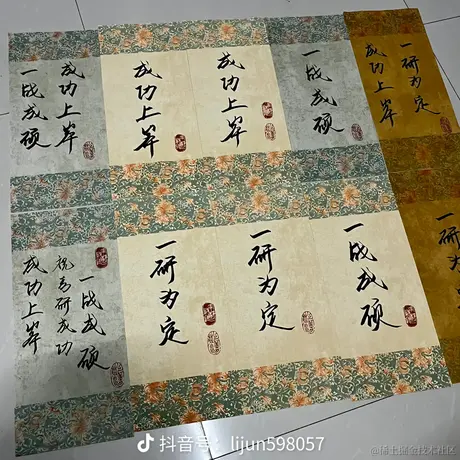 成功上岸
一战成硕
成功上岸
成功上岸
一战成硕
一研为定
成功上岸
一战成硕
祝考研成功
成功上岸
一研为定
一研为定
一战成硕
一研为定
抖音号：lijun598057
@稀土掘金技术社区